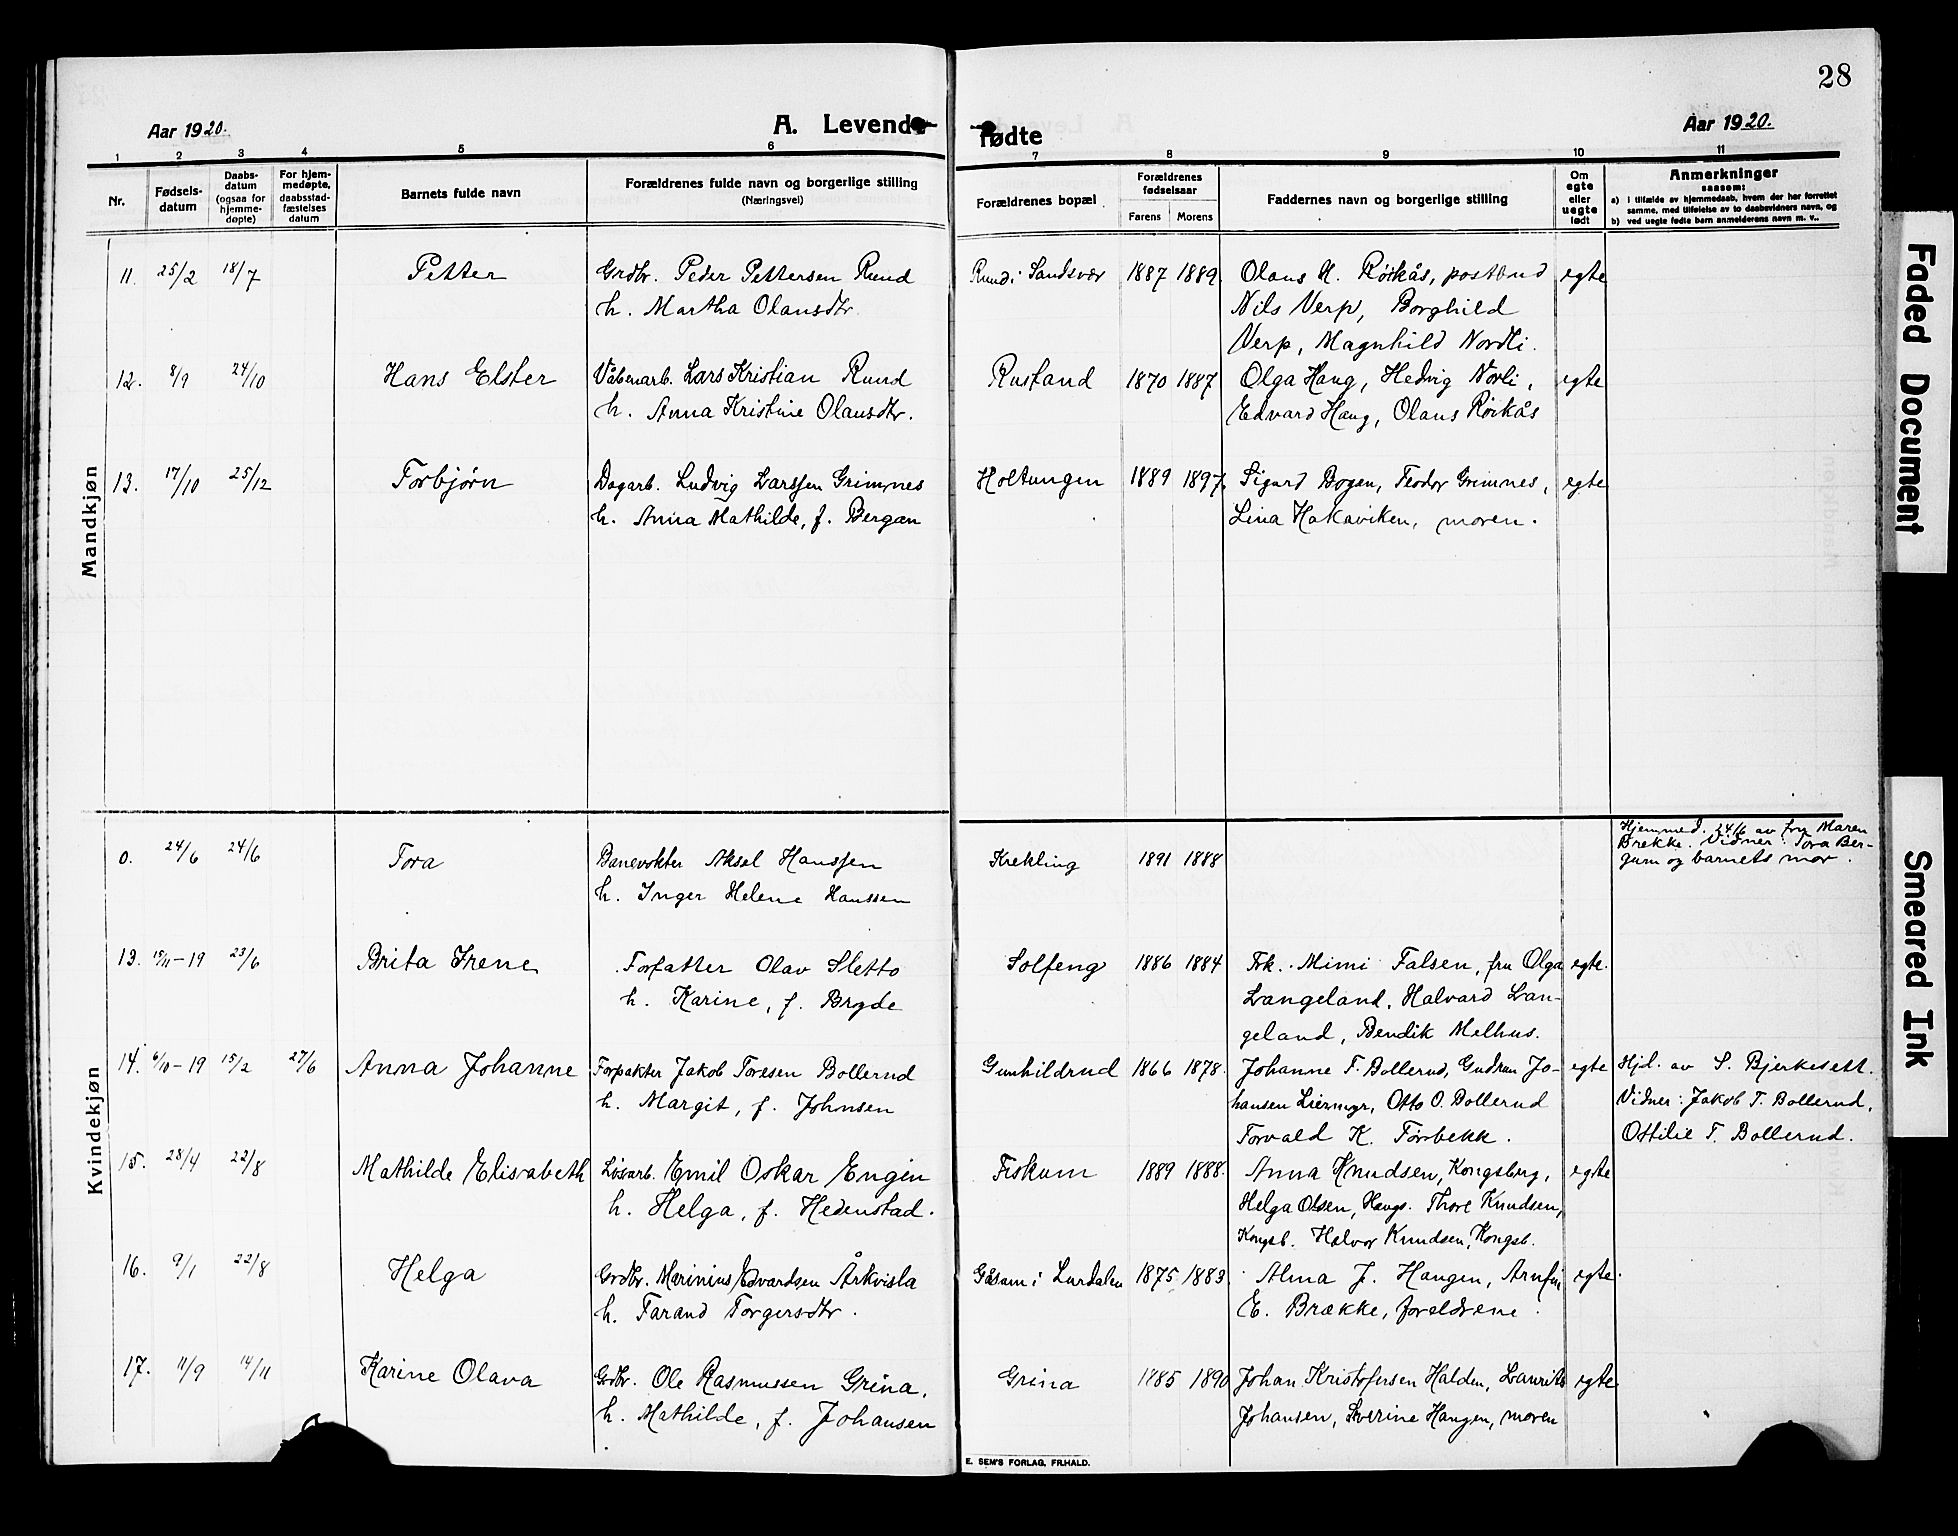 28
Aar 1920.
A. Levende
fødte
Aar 1920.
1 2 3 4 5 6 7 8 9 10 11
Nr.
Fødsels-
datum
Daabs-
datum
(ogsaa for
hjemme-
døpte)
For hjem-
medøpte,
daabsstad-
fæstelses
datum
Barnets fulde navn
Forældrenes fulde navn og borgerlige stilling
(Næringsvei)
Forældrenes bopæl
Forældrenes
fødselsaar
Farens Morens
Faddernes navn og borgerlige stilling
Om
egte
eller
uegte
født
Anmerkninger
saasom:
a) i tilfælde av hjemmedaab, hvem der har forrettet
samme, med tilføielse av to daabsvidners navn, og
b) ved uegte fødte barn anmelderens navn m. v..
Mandkjøn
11. 25/2 18/7 Petter Grdbr. Peder Pettersen Rund Rund i Sandsvær 1887 1889. Olaus H. Röikås, postbud egte
h. Martha Olausdtr. Nils Verp, Borghild
Verp, Magnhild Nordli.
12. 8/9 24/10 Hans Elster Våbenarb. Lars Kristian Rund Rustand 1870 1887 Olga Haug, Hedvig Norli, egte
h. Anna Kristine Olausdtr. Edvard Haug, Olaus Röikås
13. 17/10 25/12 Torbjørn Dagarb. Ludvig Larssen Grimnes Holtungen 1889 1897. Sigurd Bogen, Teodor Grimnes, egte
h. Anna Mathilde, f. Bergan Lina Hakaviken, moren.
Kvindekjøn
0. 24/6 24/6 Tora Banevokter Aksel Hanssen Krekling 1891 1888 Hjemmed. 24/6 av fru Maren
Brekke. Vidner: Tora Ber-
gum og barnets mor.
h. Inger Helene Hanssen
13. 15/11-19 23/6 Brita Irene Forfatter Olav Sletto Solfeng 1886 1884 Frk. Mimi Falsen, fru Olga egte.
h. Karine, f. Bryde Langeland, Halvard Lan-
geland, Bendik Melhus.
14. 6/10-19 15/2 27/6 Anna Johanne Forpakter Jakob Toresen Bollerud Gunhildrud 1866 1878. Johanne T. Bollerud, Gudrun Jo- egte Hjd. av S. Bjerkesett.
h. Margit, f. Johnsen hansen Liermyr, Otto O. Bollerud Vidner: Jakob T. Bollerud,
Torvald K. Torbekk. Ottilie T. Bollerud.
15. 28/4 22/8 Mathilde Elisabeth Løsarb. Emil Oskar Engen Fiskum 1889 1888. Anna Knudsen, Kongsberg, egte
h. Helga, f. Hedenstad. Helga Olsen, Haugs. Thore Knudsen,
Kongsb. Halvor Knudsen, Kongsb.
16. 9/1 22/8 Helga Grdbr. Marinius Edvardsen Årkvisla Gåsum i Lurdalen 1875 1883. Alma J. Haugen, Arnfin egte
h. Tarand Torgersdtr. E. Brække, foreldrene.
17. 11/9 14/11 Karine Olava Grdbr. Ole Rasmussen Grina, Grina 1885 1890 Johan Kristofersen Halden, Laurits egte
h. Mathilde, f. Johansen Johansen, Severine Haugen, moren
E. SEM'S FORLAG, FR.HALD.
Faded Document
Smeared Ink